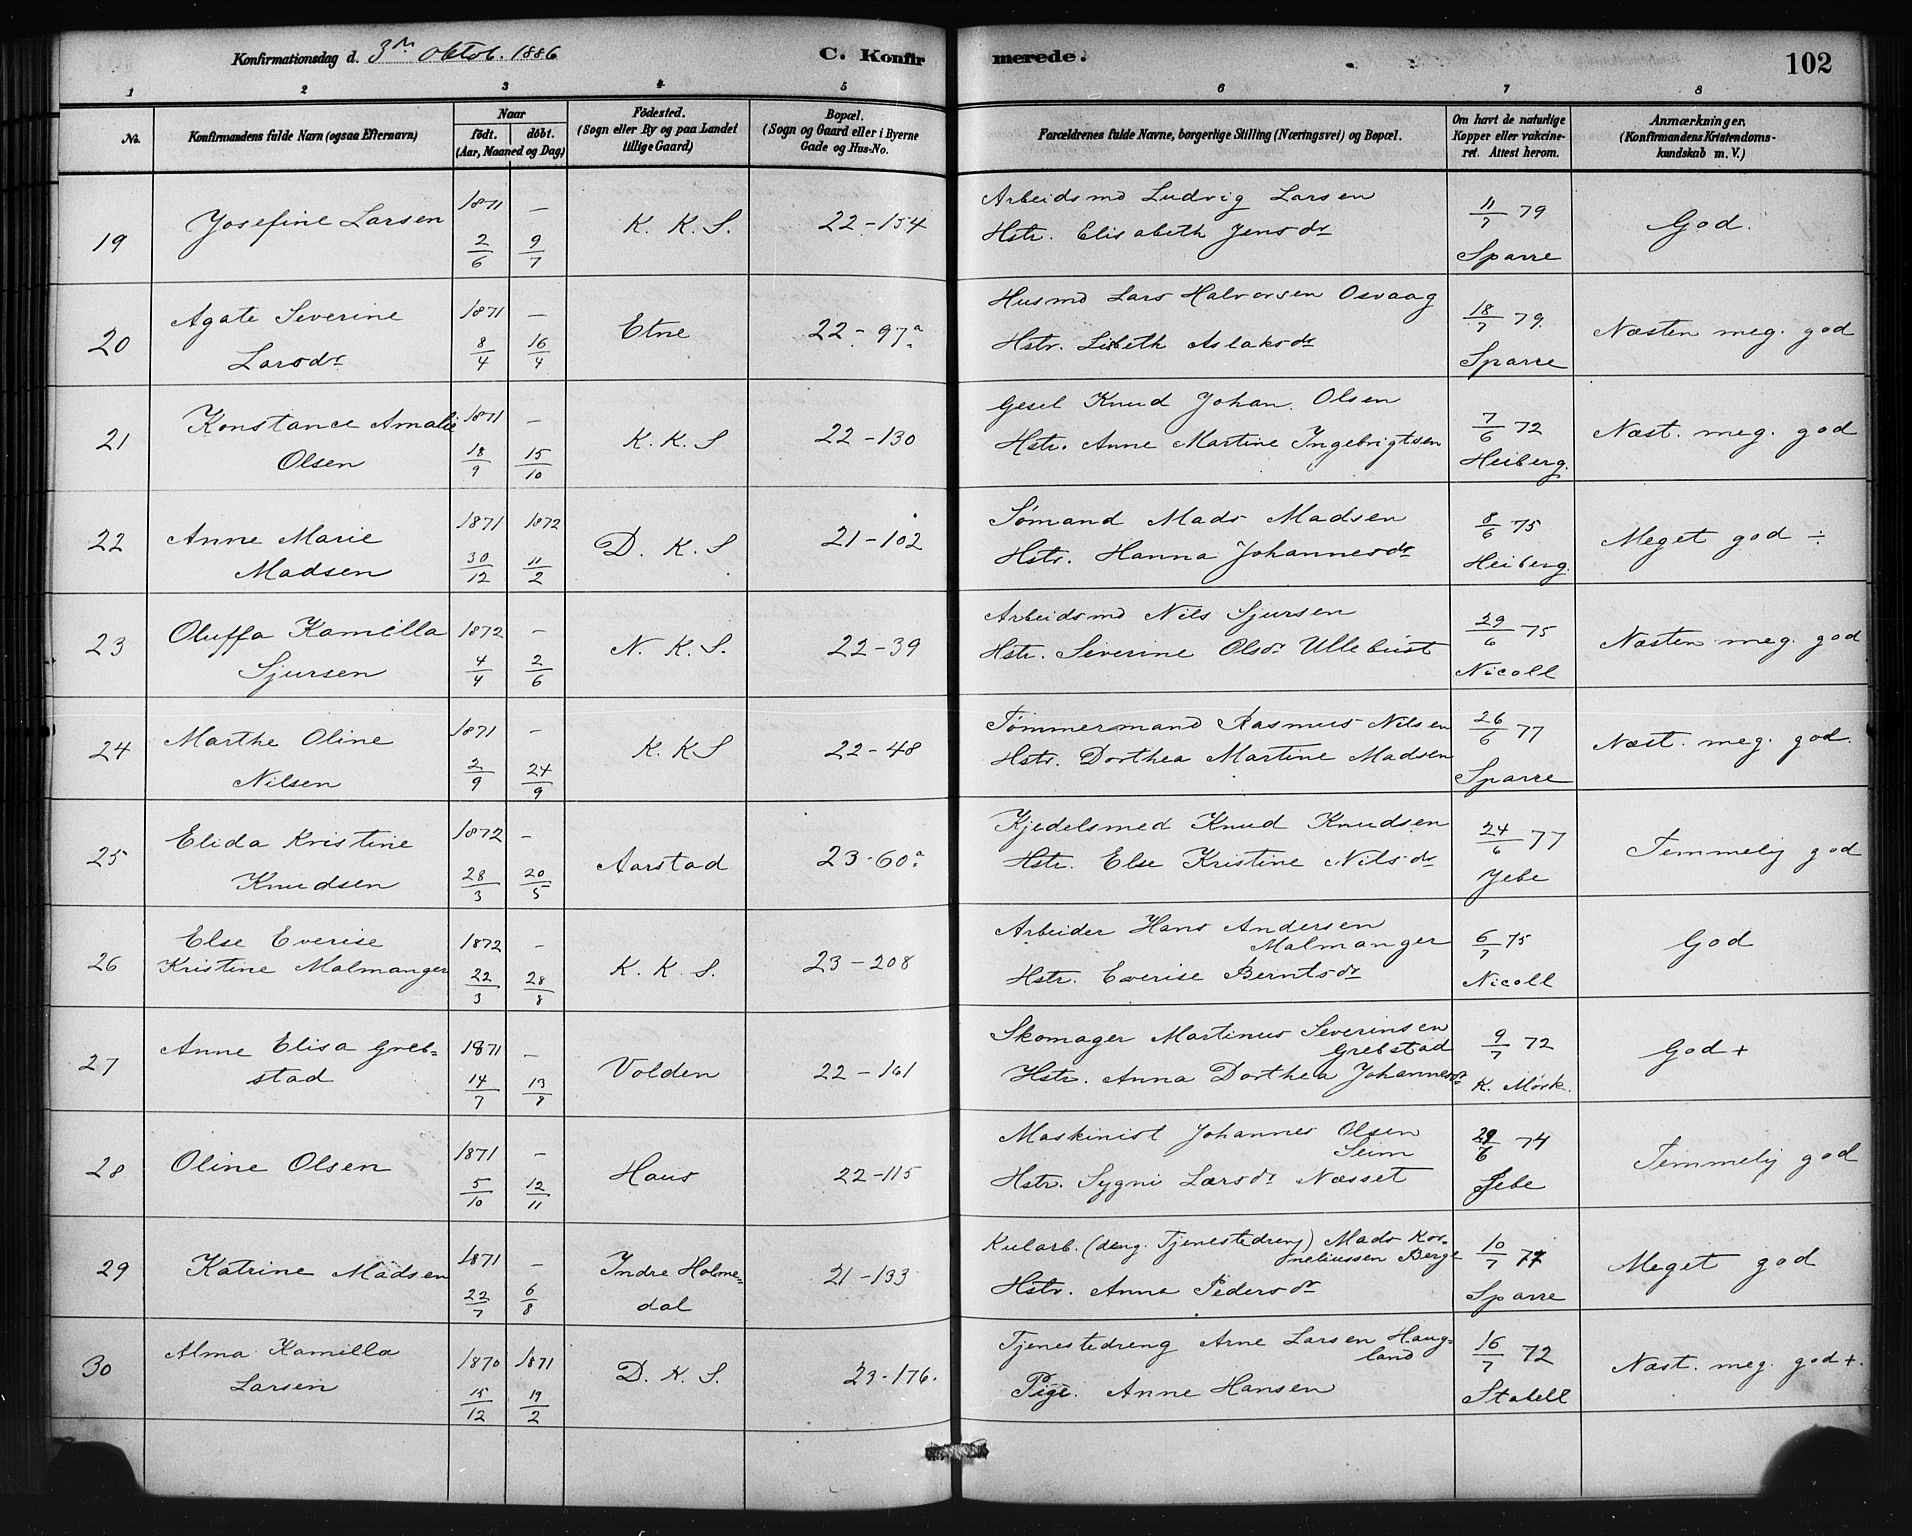 Konfirmationsdag d. 3die Oktob. 1886 C. Konfirmerede. 102
1 2 3 4 5 6 7 8
No. Konfirmandens fulde Navn (ogsaa Efternavn) Naar födt. döbt. (Aar, Maaned og Dag) Födested. (Sogn eller By og paa Landet tillige Gaard) Bopæl. (Sogn og Gaard eller i Byerne Gade og Hus-No. Forældrenes fulde Navne, borgerlige Stilling (Næringsvei) og Bopæl. Om havt de naturlige Kopper eller vakcineret. Attest herom. Anmærkninger, (Konfirmandens Kristendomskundskab m. V.)
19 Josefine Larsen 1871 2/6 — 9/7 K. K. S. 22-154 Arbeidsmd Ludvig Larsen
Hstr. Elisabeth Jensdr 11/7 79 Sparre God.
20 Agate Severine
Larsdr 1871 8/4 — 16/4 Etne 22-97a Husmd Lars Halvorsen Osvaag
Hstr. Lisbeth Aslaksdr 18/7 79. Sparre Næsten meg. god
21 Konstance Amalie
Olsen 1871 18/9 — 15/10 K. K. S 22-130 Gesel Knud Johan. Olsen
Hstr. Anne Martine Ingebrigtsen 7/6 72 Heiberg. Næst. meg. god
22 Anne Marie
Madsen 1871 30/12 1872 11/2 D. K. S 21-102 Sømand Mads Madsen
Hstr. Hanna Johannesdr 8/6 75 Heiberg. Meget god ÷
23 Oluffa Kamilla
Sjursen 1872 4/4 — 2/6 N. K. S. 22-39 Arbeidsmd Nils Sjursen
Hstr. Severine Olsdr Ullebust 29/6 75 Nicoll Næsten meg. god
24 Marthe Oline
Nilsen 1871 2/9 — 24/9 K. K S 22-48 Tømmermand Rasmus Nilsen
Hstr. Dorthea Martine Madsen 26/6 77 Sparre Næst. meg. god.
25 Elida Kristine
Knudsen 1872 28/3 — 20/5 Aarstad 23-60a Kjedelsmed Knud Knudsen
Hstr. Else Kristine Nilsdr 24/6 77 Jebe Temmelig god
26 Else Everise
Kristine Malmanger 1872 22/3 — 28/8 K. K. S. 23-208 Arbeider Hans Andersen
Malmanger
Hstr. Everise Berntsdr 6/7 75 Nicoll God
27 Anne Elisa Greb=
stad 1871 14/7 — 13/8 Volden 22-161 Skomager Martinus Severinsen
Grebstad
Hstr. Anna Dorthea Johannesdr 9/7 72 K. Mörk. God +
28 Oline Olsen 1871 5/10 — 12/11 Haus 22-115 Maskinist Johannes Olsen
Seim
Hstr. Sygni Larsdr Næsset 29/6 74 Jebe Temmelig god
29 Katrine Madsen 1871 22/7 — 6/8 Indre Holme=
dal 21-133 Kularb. (deng. Tjenestedreng) Mads Kor=
neliussen Berge
Hstr. Anne Pedersdr 10/7 77 Sparre Meget god
30 Alma Kamilla
Larsen 1870 15/12 1871 19/2 D. K. S. 23-176. Tjenestedreng Arne Larsen Haug=
land
Pige. Anne Hansen 16/7 72 Stabell Næst. meg. god +.